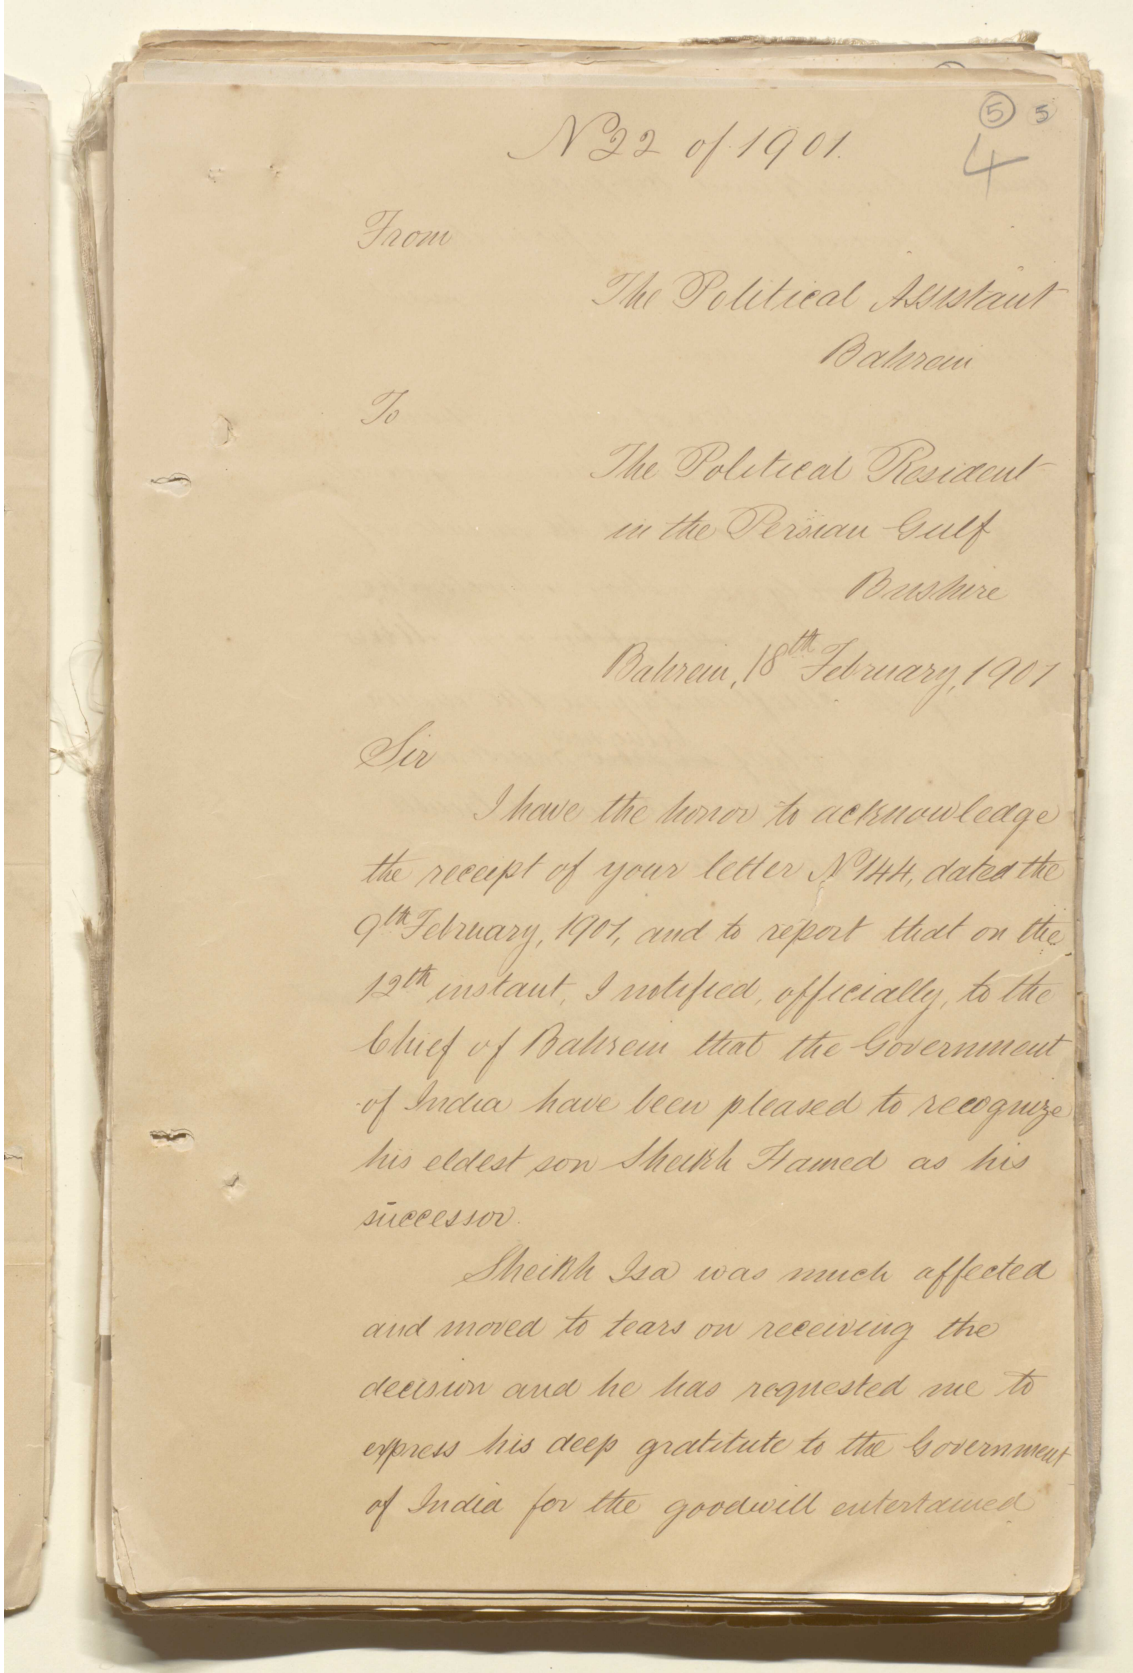 5 5
4
No 22 of 1901.
From
The Political Assistant
Bahrein
To
The Political Resident
in the Persian Gulf
Bushire
Bahrein, 18th February, 1901
Sir
I have the honor to acknowledge
the receipt of your letter No 144, dated the
9th February, 1901, and to report that on the
12th instant, I notified, officially, to the
Chief of Bahrein that the Government
of India have been pleased to recognize
his eldest son Sheikh Hamed as his
successor.
Sheikh Isa was much affected
and moved to tears on receiving the
decision and he has requested me to
express his deep gratitute to the Government
of India for the goodwill entertained